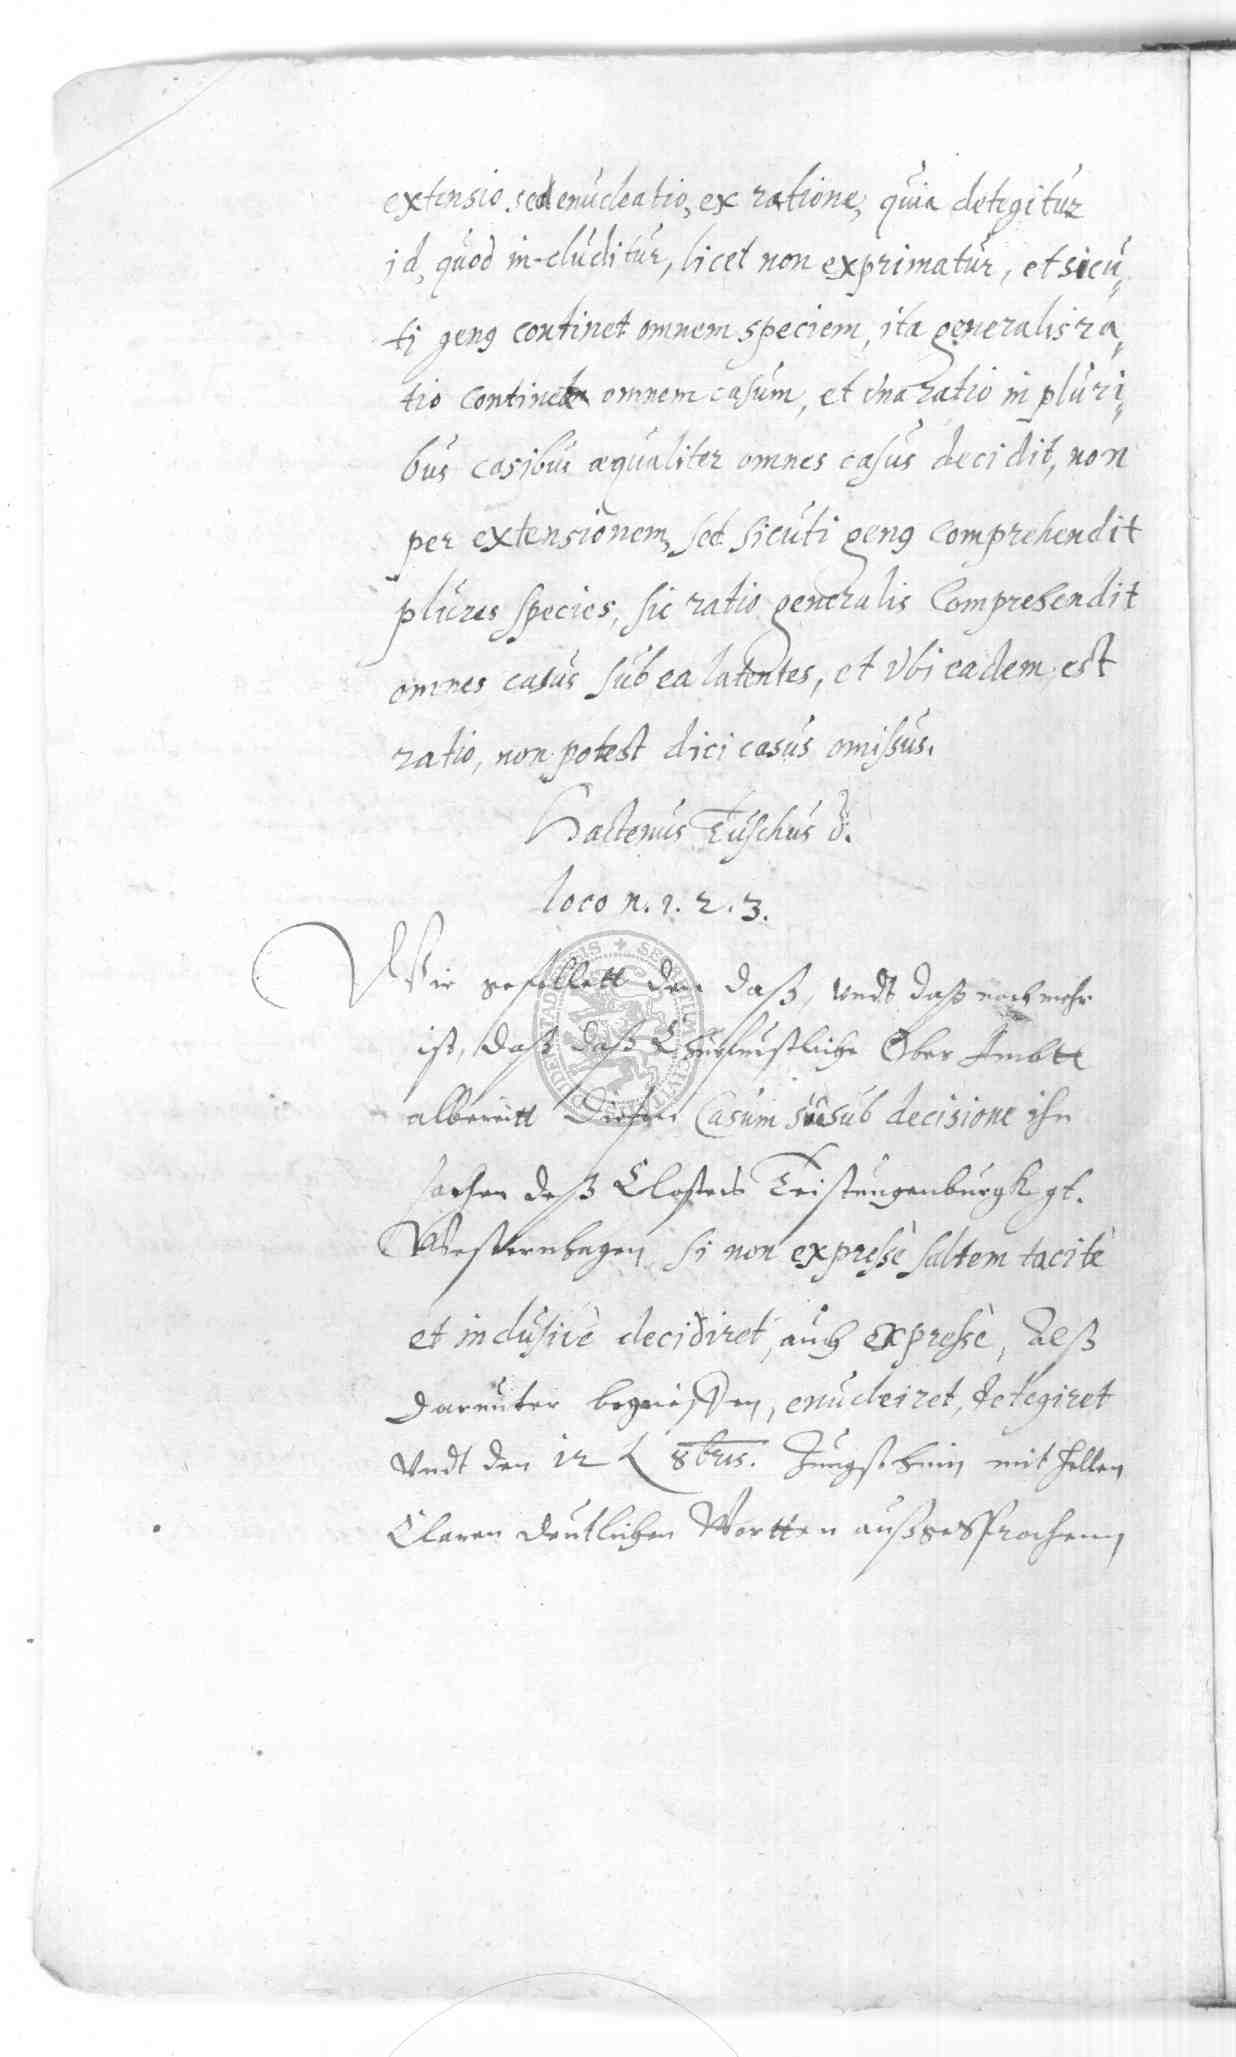 extensio sed enucleatio, ex ratione, quia detegitur
id, quod in-cluditur, licet non exprimatur, et sicu„
ti geng continet omnem speciem, ita generalis ra„
tio continet omnem casum, et vna ratio in pluri„
bus casibus æqualiter omnes casus decidit, non
per extensionem, sed sicuti geng comprehendit
plures species, sic ratio generalis Comprehendit
omnes casus sub ea latentes, et vbi eadem est
ratio, non potest dici casus omissus.
Hactenus Tuschus d.
loco n. 1. 2. 3.
Wie gefellett den daß, vndt daß noch mehr
ist, daß daß Churfurstliche Ober Ambtt
albereitt diesen Casum sub decisione ihn
sachen deß Closters Teistungenburgk gt.
Westernhagen si non expressè saltem tacitè
et inclusivè decidiret, auch expressè, alß
darunter begriffen, enucleiret, detegiret
vndt den 12 8bris. Jungsthin mit hellen
Claren deutlichen Wortten außgesprochenn